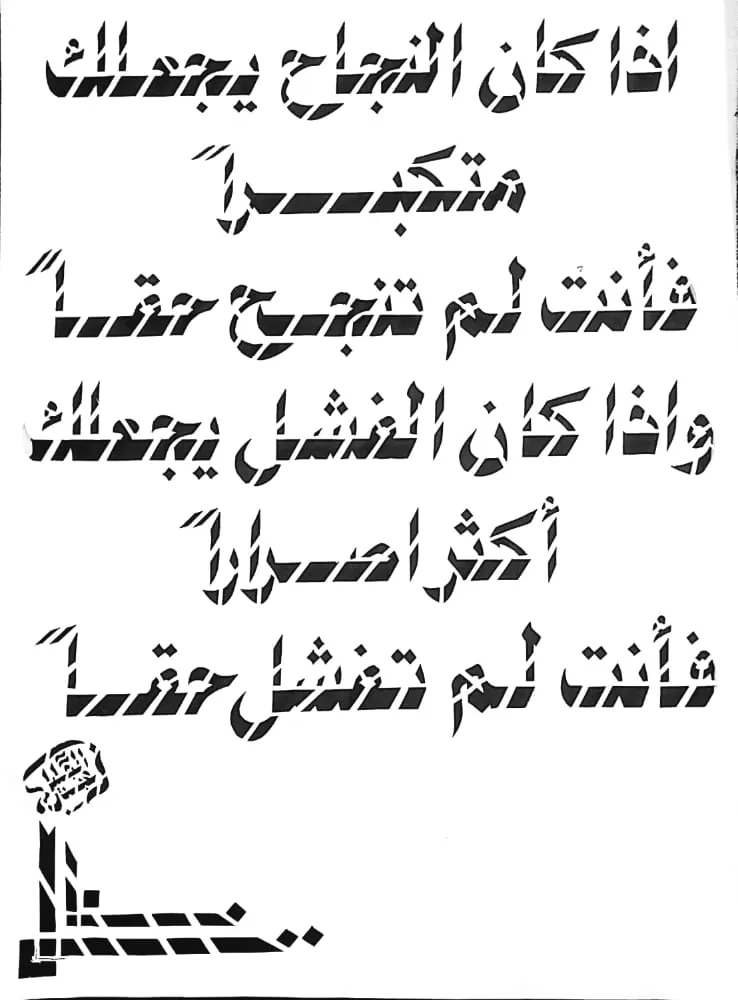 اذا كان النجاح يجعلك
متكبــــراً
فأنت لم تنجــح حقــاً
واذا كان الفشل يجعلك
أكثر اصــراراً
فأنت لم تفشل حقــاً